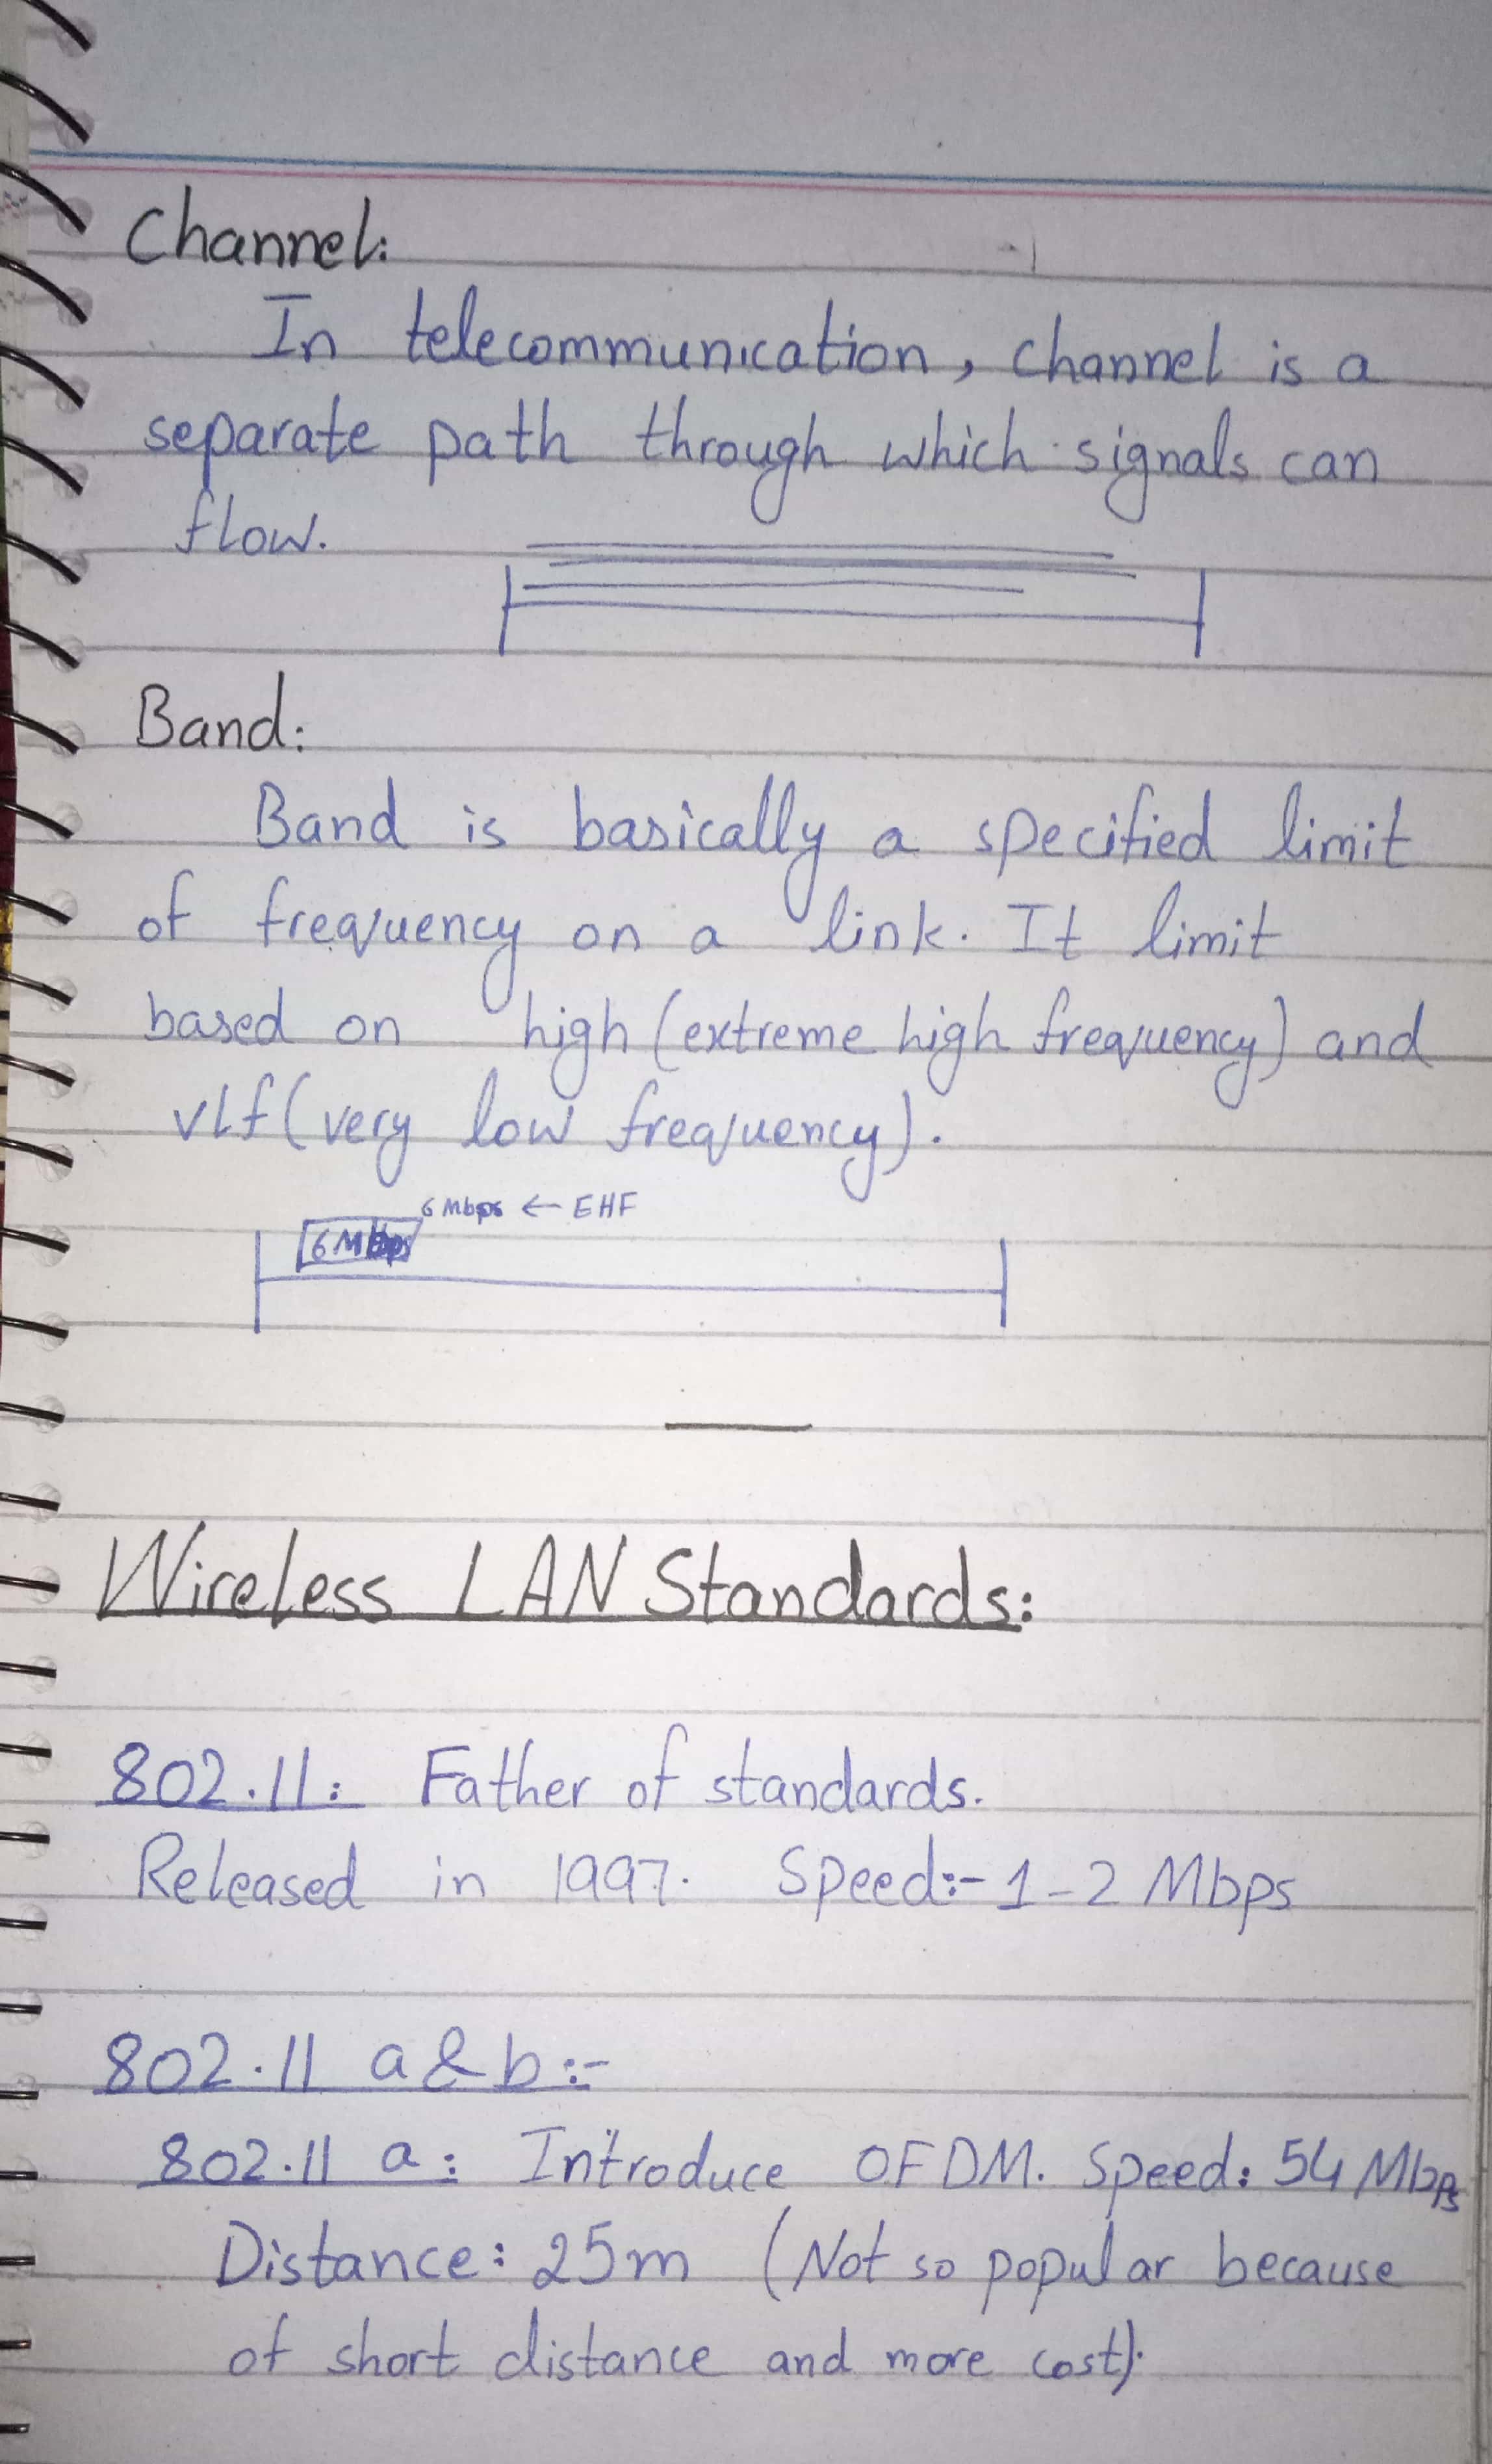 Channel:
In telecommunication, channel is a
separate path through which signals can
flow.
Band:
Band is basically a specified limit
of frequency on a link. It limit
based on high (extreme high frequency) and
vlf (very low frequency).
6 Mbps ← EHF
6 Mbps
Wireless LAN Standards:
802.11: Father of standards.
Released in 1997. Speed:- 1-2 Mbps
802.11 a & b:-
802.11 a: Introduce OFDM. Speed: 54 Mbps
Distance: 25m (Not so popular because
of short distance and more cost).